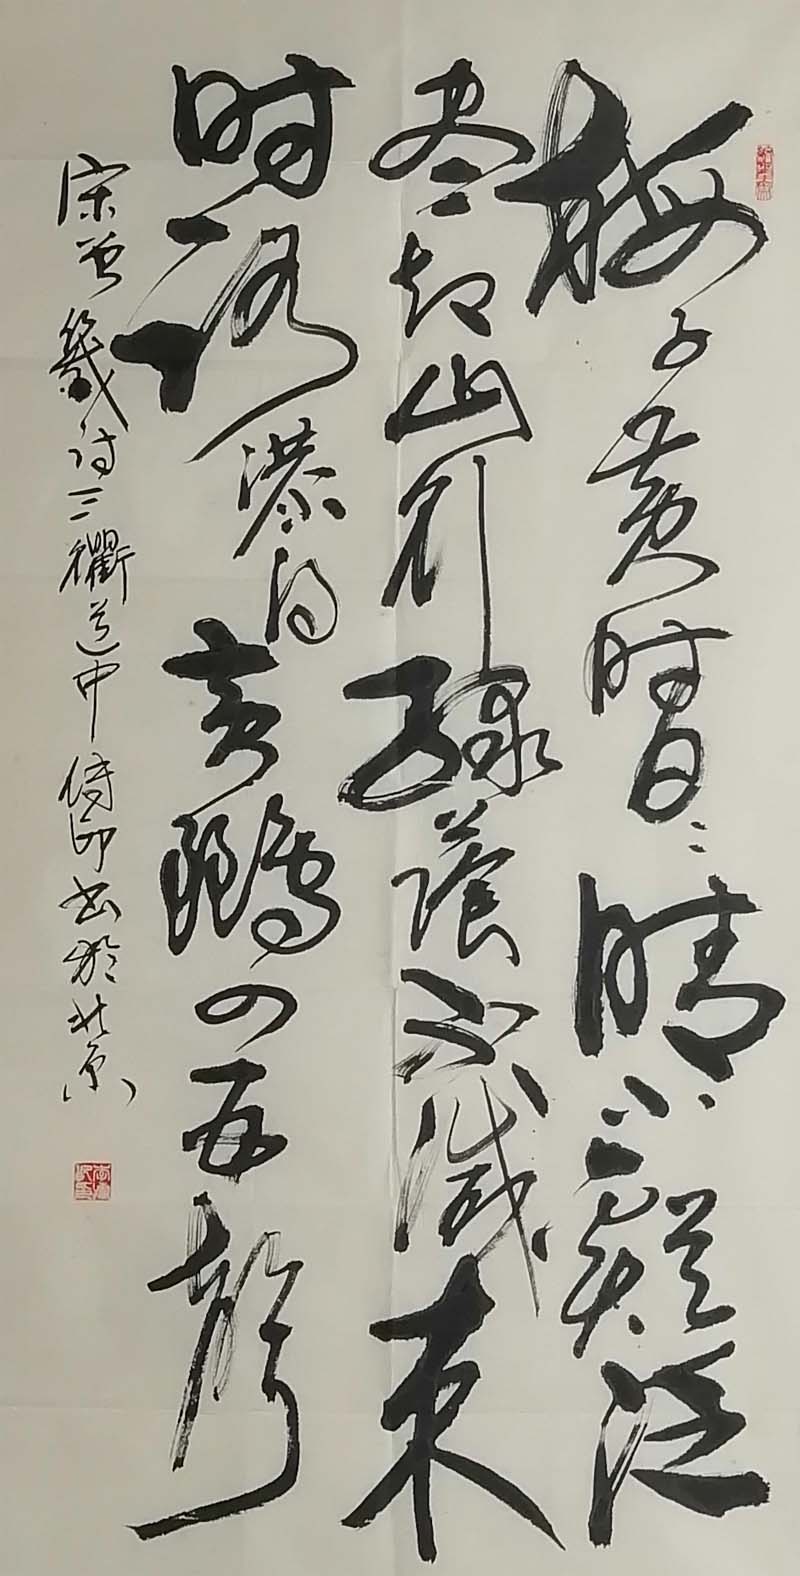 梅子黄时日〻晴小谿泛
尽却山行绿蔭不减来
时路添得黄鹂四五聲
宋曾幾诗三衢道中 书於北京